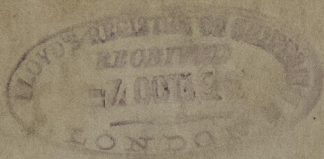 LLOYD'S REGISTER OF SHIPPING
RECEIVED
OCT
LONDON